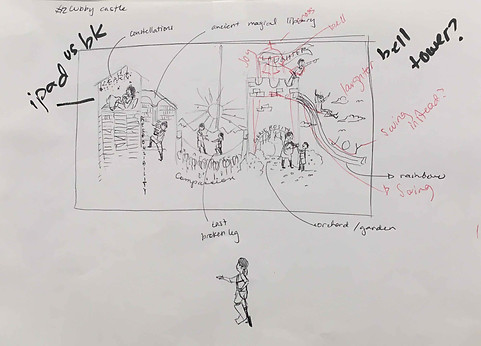 #2 Wubby castle
constellations
ancient magical library
bell
ipad vs bk
bell
tower?
Joy
laughter
Joy
Swing
instead?
rainbow
Swing
Compassion
cast
broken leg
orchard / garden